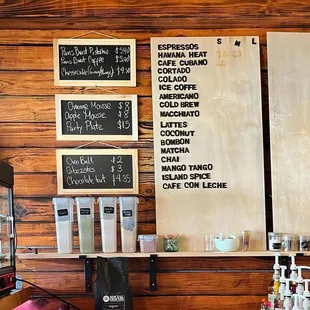 Paris Brest Pistachio $5.40
Paris Brest Coffee $5.00
Cheesecake $4.50
Orange Mousse $8
Apple Mousse $8
Party Plate $15
Oreo Ball $2
Cheesecake $3
Chocolate tart $4.35
S M L
ESPRESSOS
HAVANA HEAT
CAFE CUBANO
CORTADO
COLADO
ICE COFFE
AMERICANO
COLD BREW
MACCHIATO
LATTES
COCONUT
BOMBON
MATCHA
CHAI
MANGO TANGO
ISLAND SPICE
CAFE CON LECHE